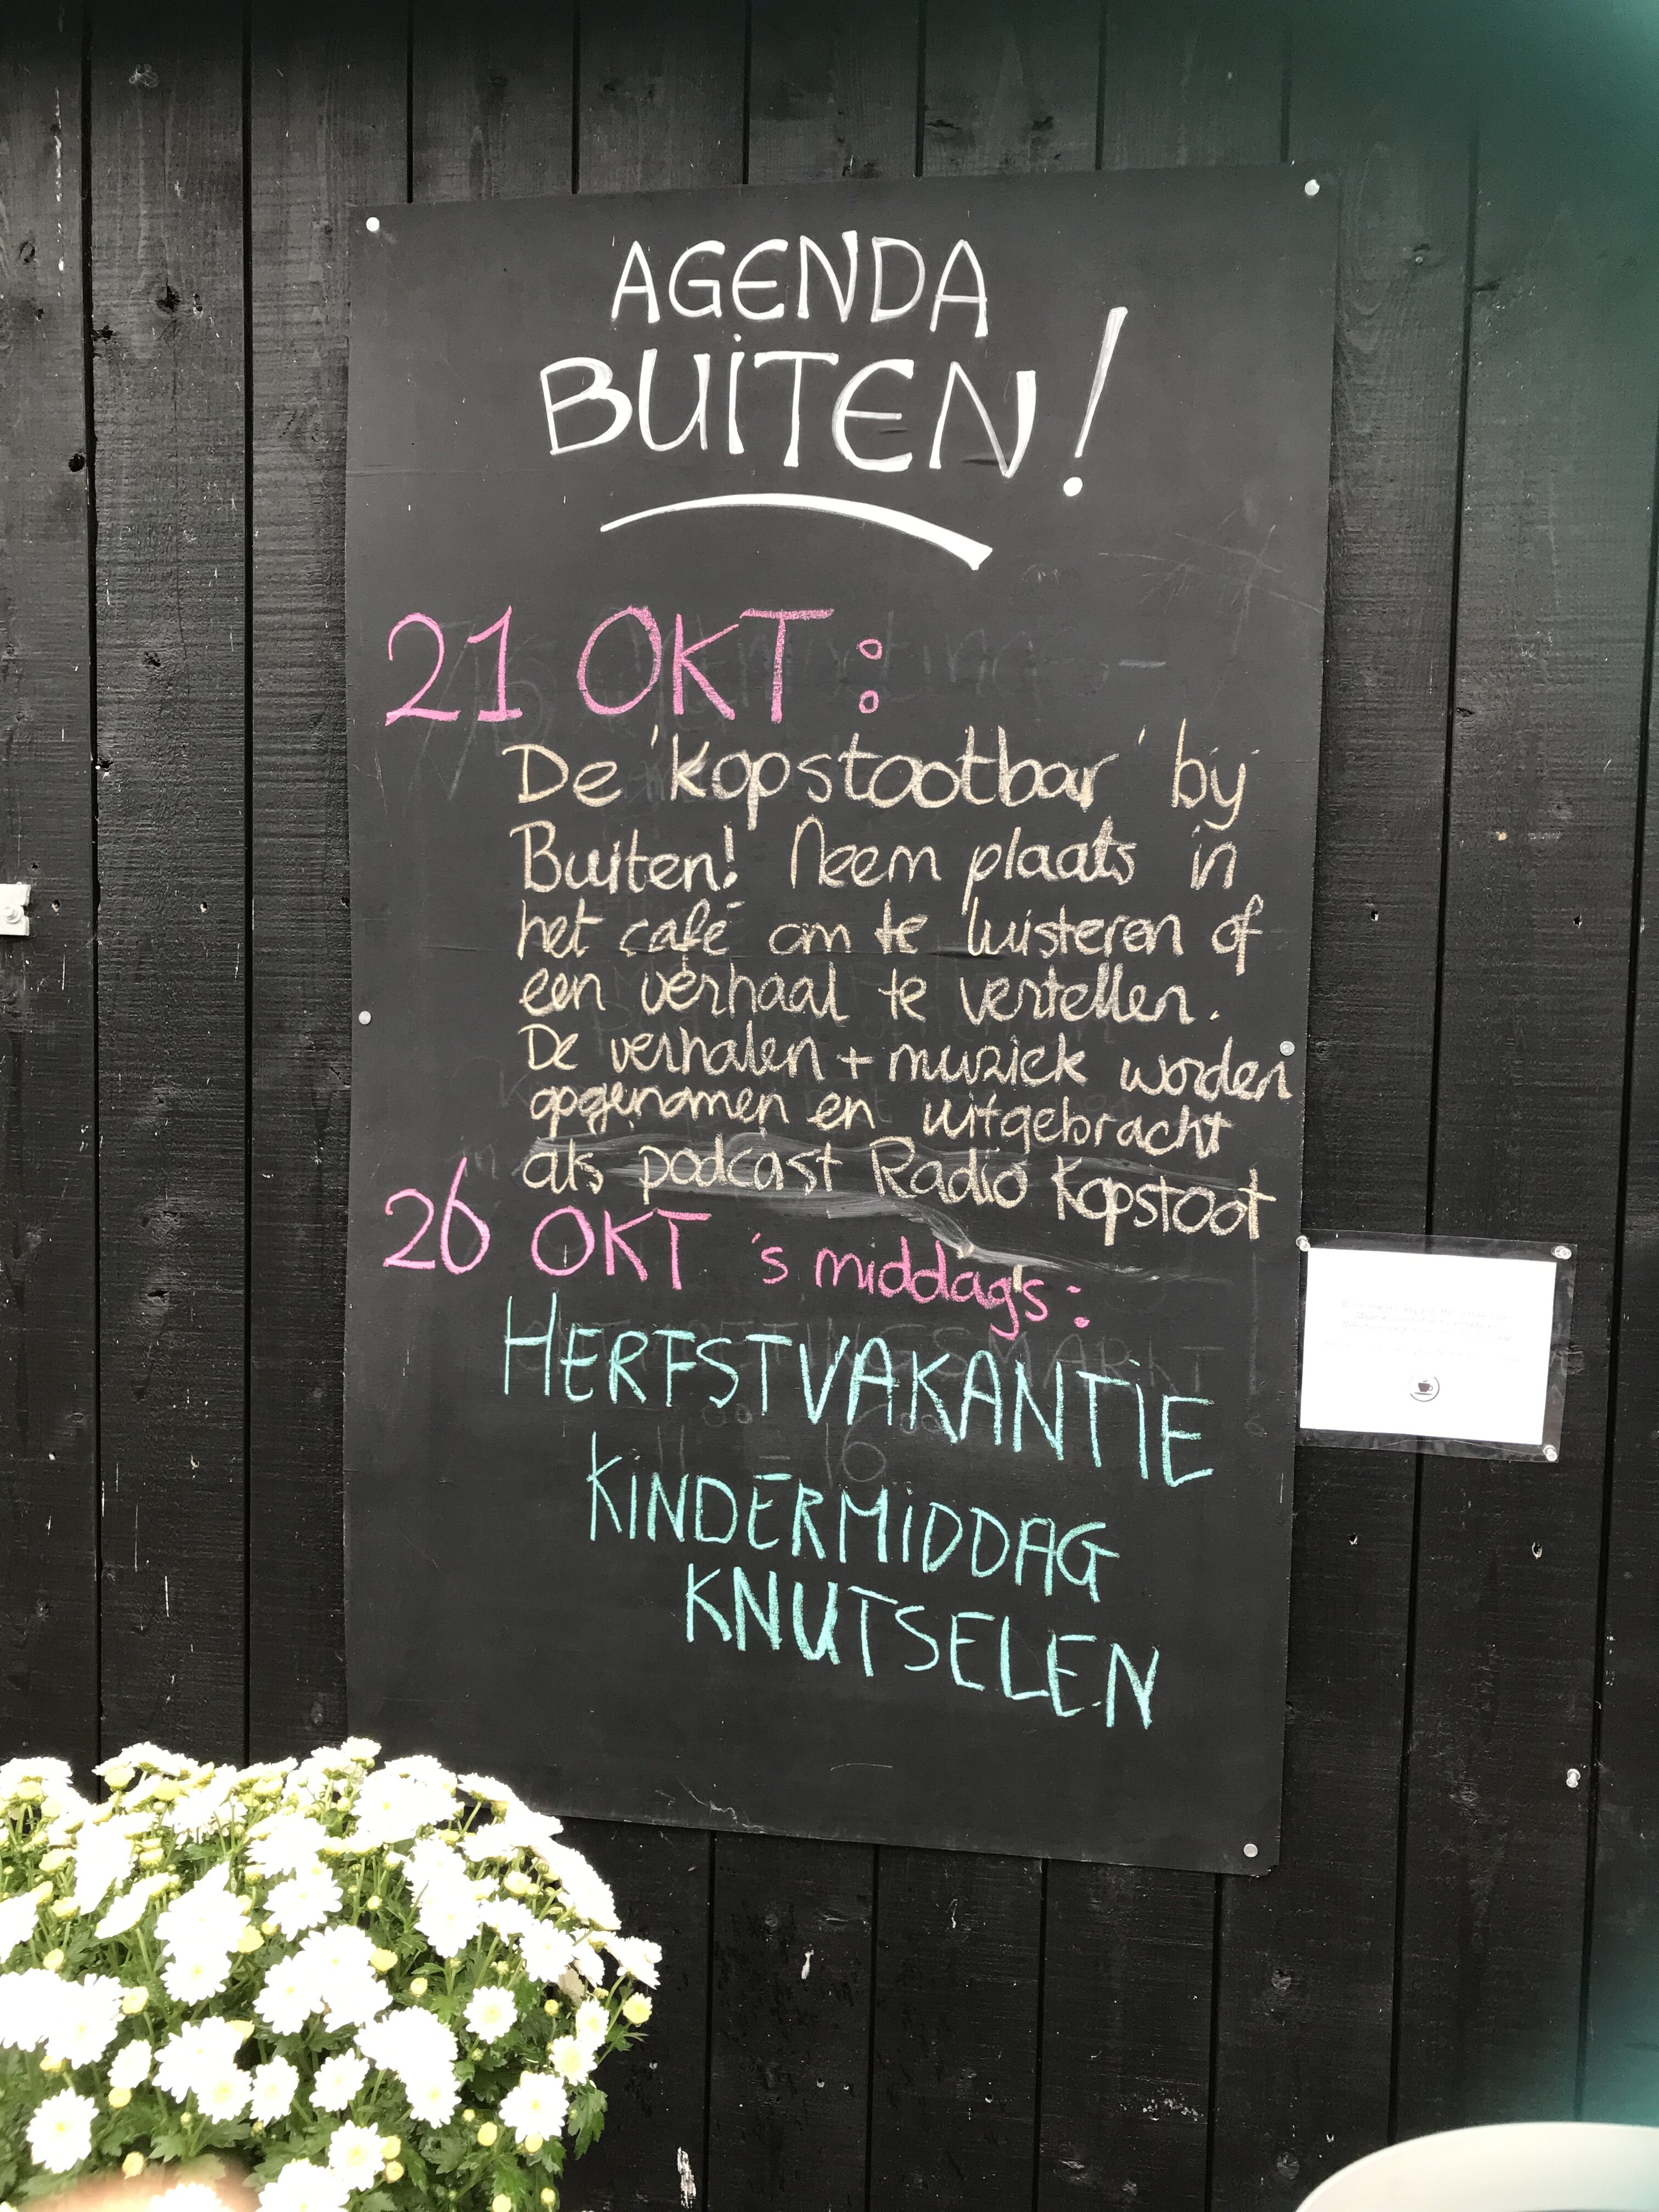 AGENDA
BUITEN!
21 OKT:
De 'kopstootbar' bij
Buiten! Neem plaats in
het café om te luisteren of
een verhaal te vertellen.
De verhalen + muziek worden
opgenomen en uitgebracht
als podcast Radio Kopstoot
26 OKT 's middags:
HERFSTVAKANTIE
KINDERMIDDAG
KNUTSELEN